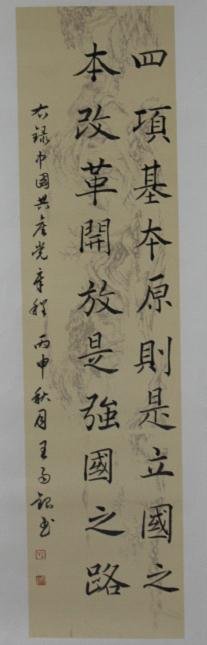 四項基本原則是立國之
本改革開放是強國之路
右録中國共產党章程 丙申秋月王 書